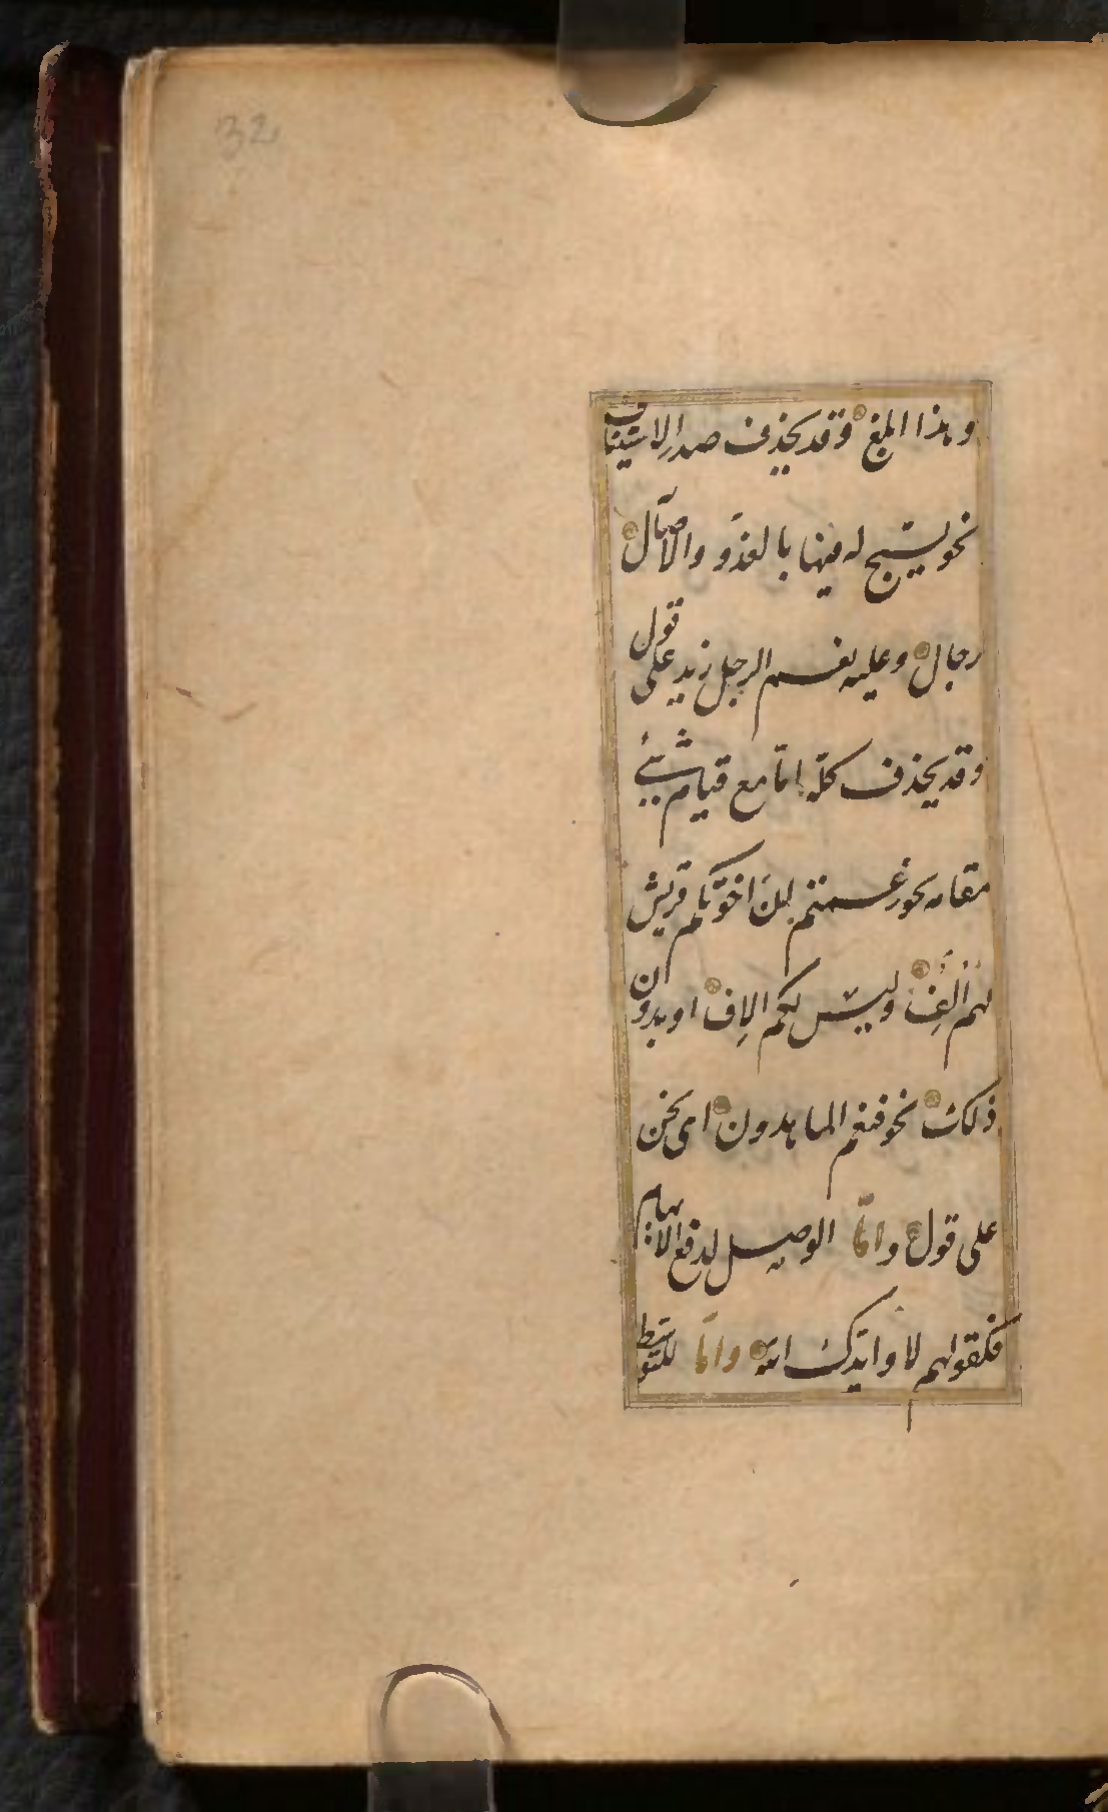 32
وهذا ابلغ وقد يحذف صدر الاستيناف
نحو يسبح له فيها بالغدو والاصال
رجال وعليه نعم الرجل زيد على قول
وقد يحذف كله اما مع قيام شيئ
مقامه نحو زعمتم ان اخوتكم قريش
لهم الف وليس لكم الاف او بدون
ذلك نحو فنعم الماهدون اى نحن
على قول واما الوصل لدفع الايهام
فكقولهم لا وايدك الله واما للتوسط